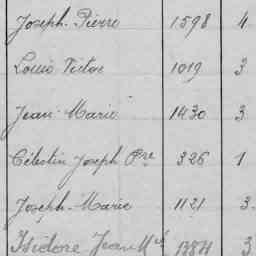 Joseph-Pierre 1598 4
Louis Victor 1019 3
Jean-Marie 1430 3
Célestin Joseph Pre 326 1
Joseph-Marie 1121 3
Isidore Jean Mie 3